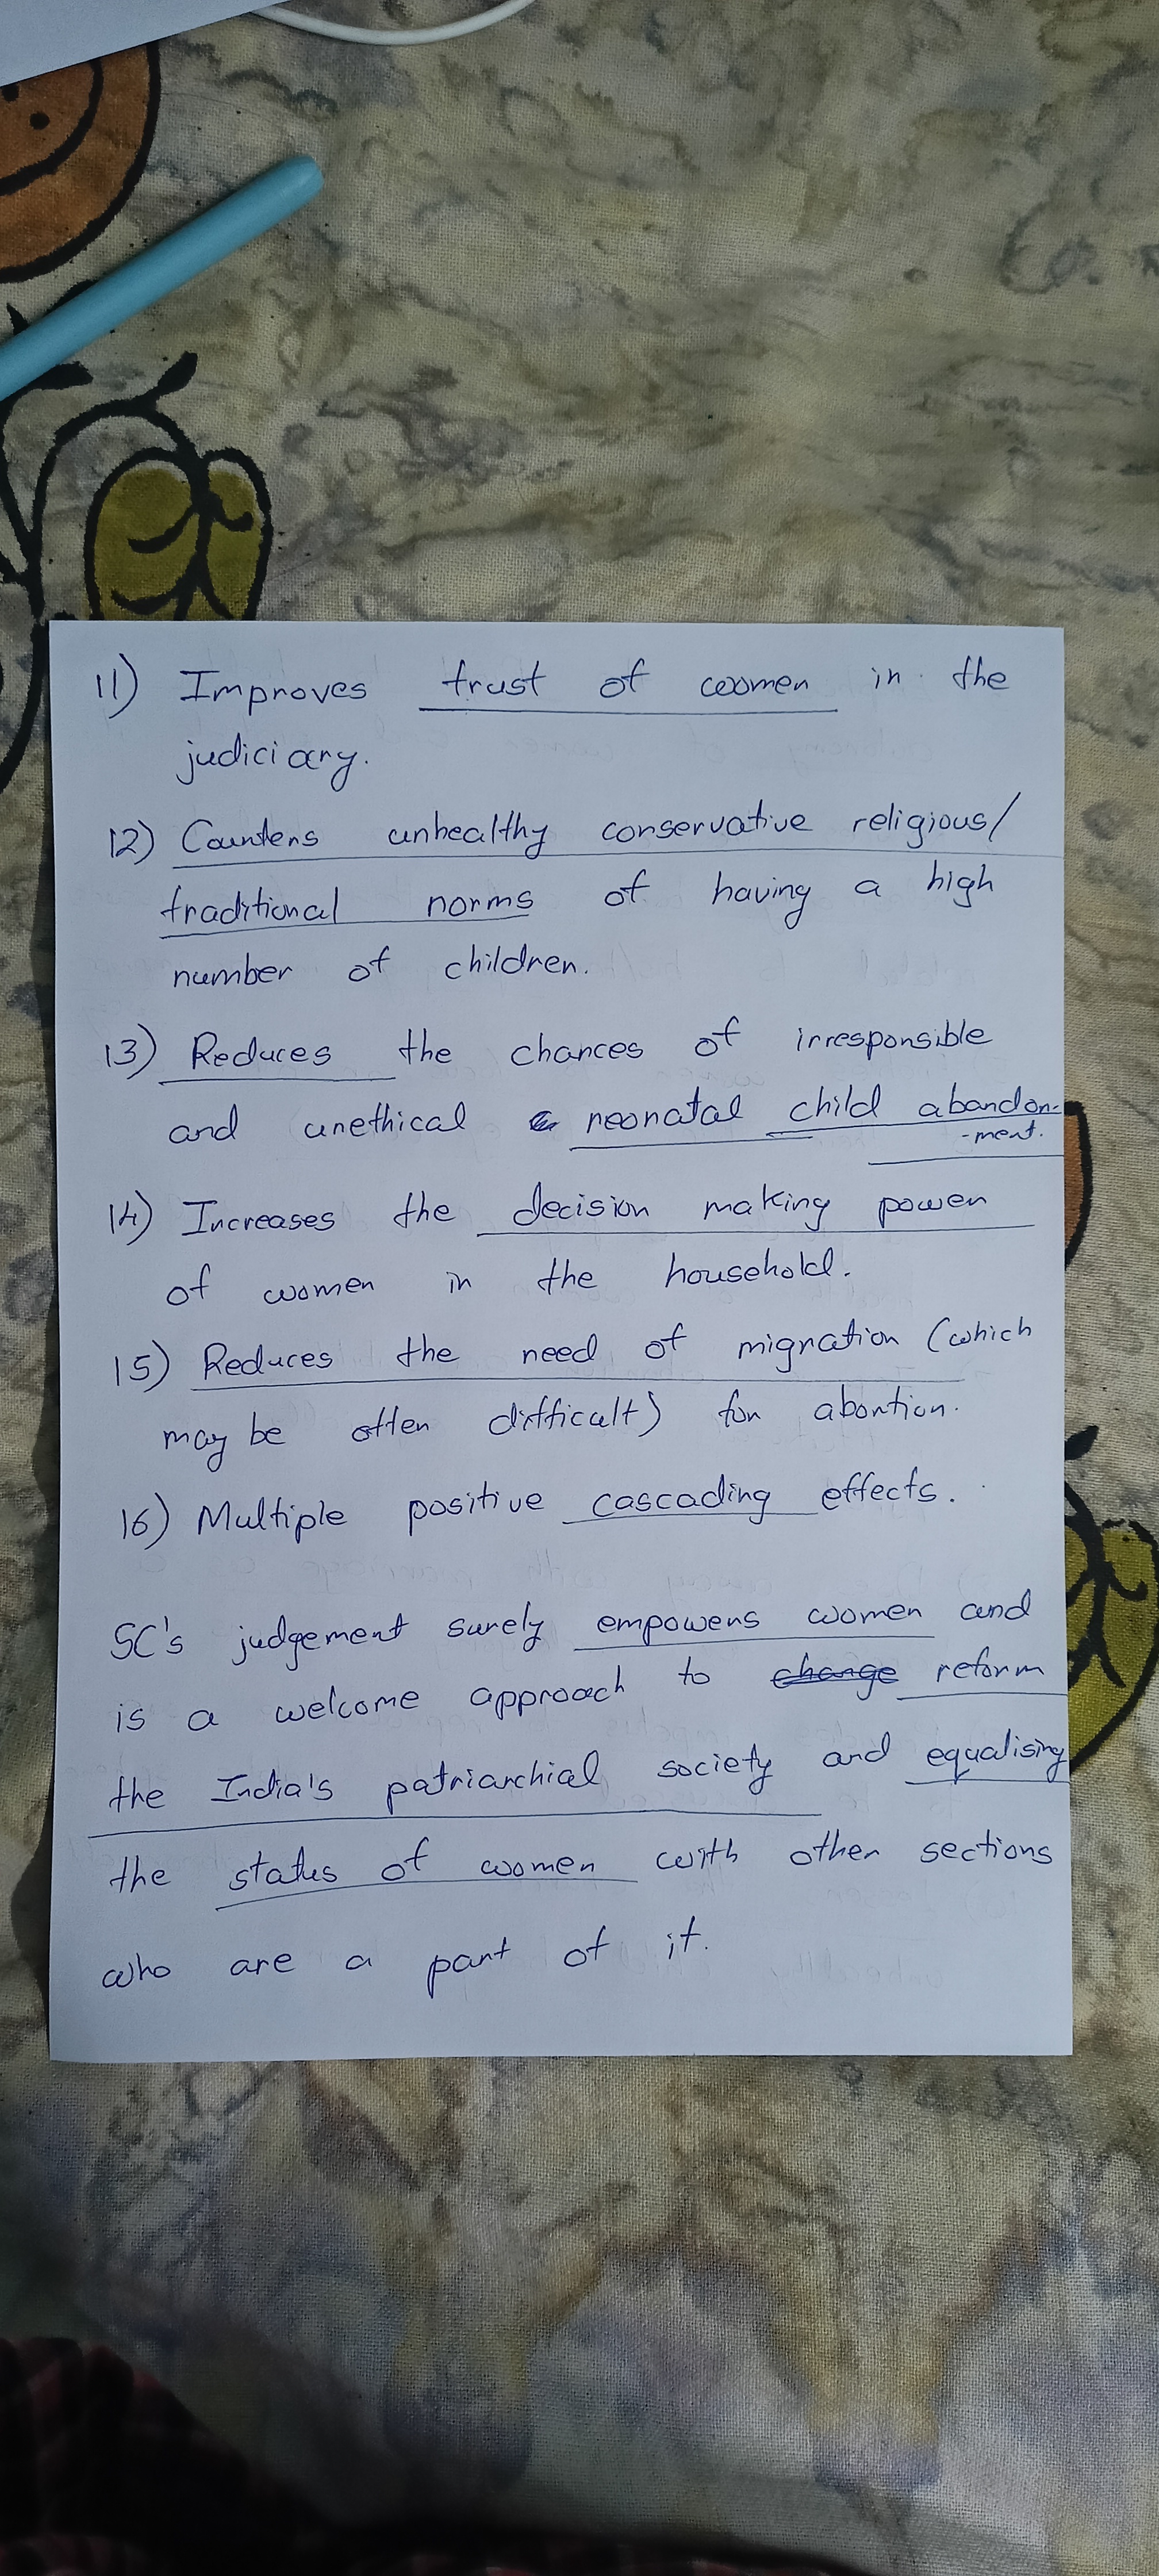 11) Improves trust of women in the
judiciary.
12) Counters unhealthy conservative religious/
traditional norms of having a high
number of children.
13) Reduces the chances of irresponsible
and unethical neonatal child abandon-
-ment.
14) Increases the decision making power
of women in the household.
15) Reduces the need of migration (which
may be often difficult) for abortion.
16) Multiple positive cascading effects.
SC's judgement surely empowers women and
is a welcome approach to change reform
the India's patriarchial society and equalising
the status of women with other sections
who are a part of it.